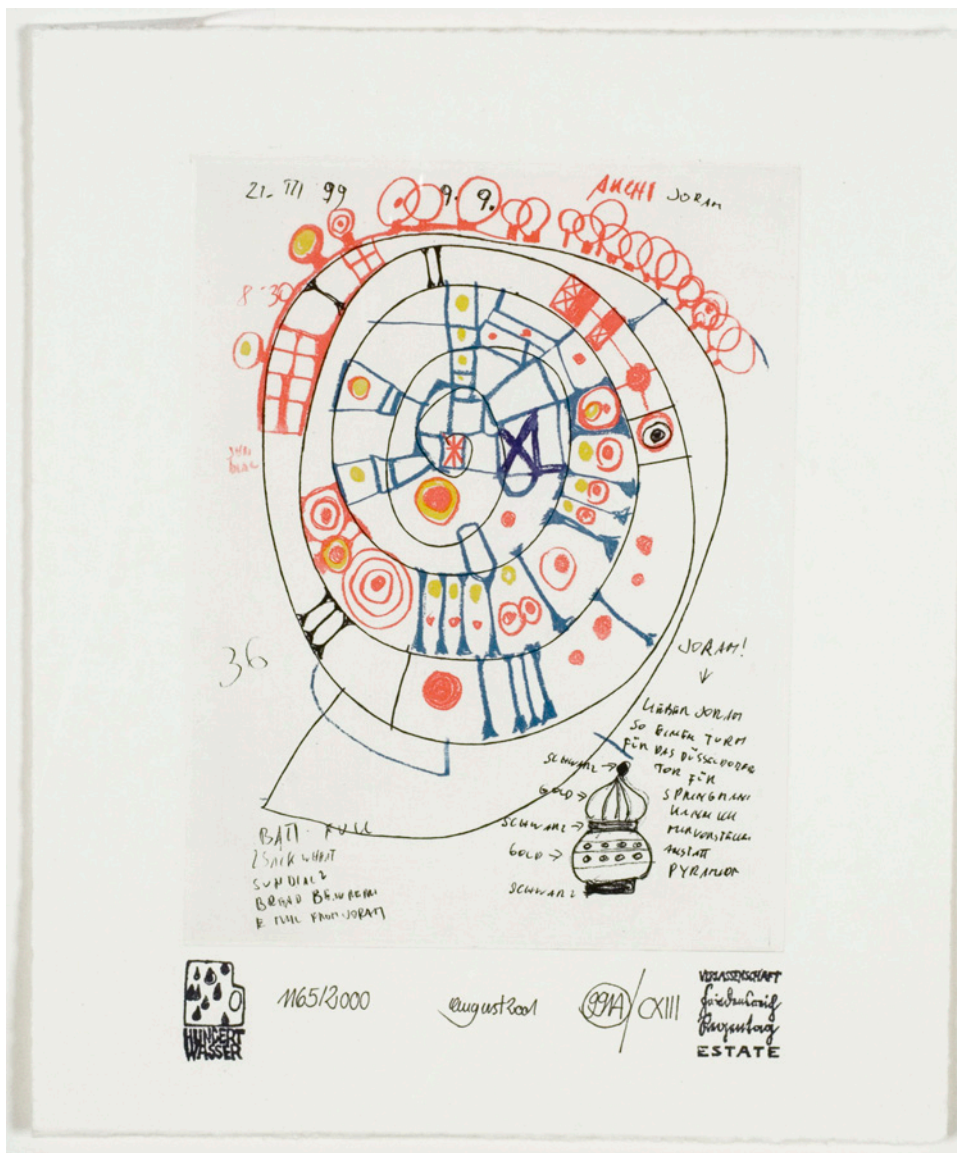 21. III 99 9. 9. ARCHI JORAM
8·30
36
JORAM!
LIEBER JORAM
SO EINEN TURM
FÜR DAS DÜSSELDORFER
TOR FÜR
SPRINGMANN
KANN ICH
MIR VORSTELLEN
ANSTATT
PYRAMIDE
SCHWARZ
GOLD
SCHWARZ
GOLD
SCHWARZ
SUNDIAL
BREAD
FROM JORAM
HUNDERT
WASSER
1165/2000
august 2001
991A/CXIII
VERLASSENSCHAFT
Friedensreich
Regentag
ESTATE